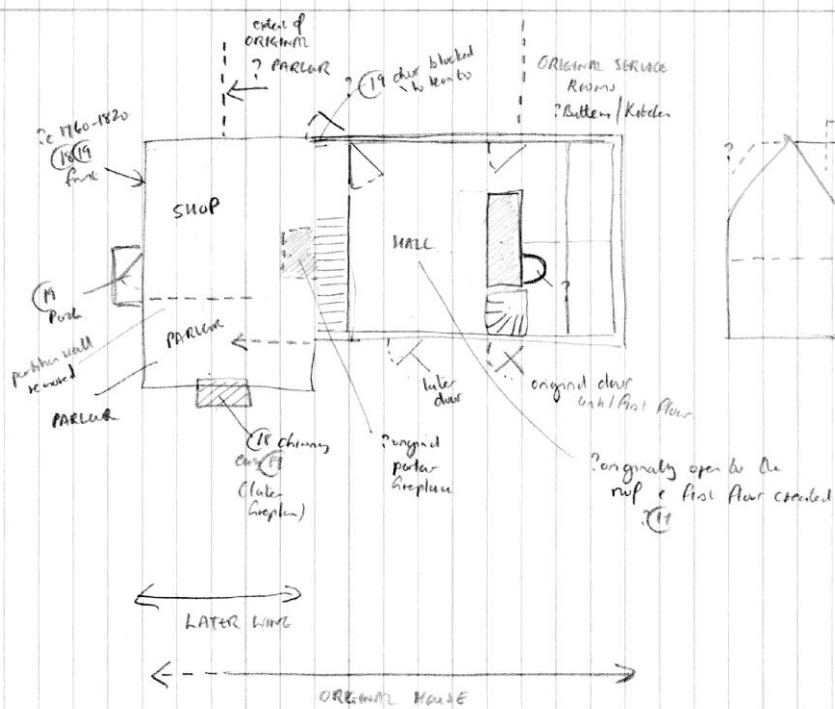 extent of
ORIGINAL
? PARLOUR
? 19 door blocked
to lean to
ORIGINAL SERVICE
ROOMS
? Buttery / Kitchen
?c 1760-1820
18 19
front
SHOP
HALL
?
19
Porch
PARLOUR
partition wall
removed
PARLOUR
?
later
door
original door
with / first floor
18 chimney
early 19
(later
fireplace)
? original
parlour
fireplace
? originally open to the
roof & first floor created
? 17
LATER WING
ORIGINAL HOUSE